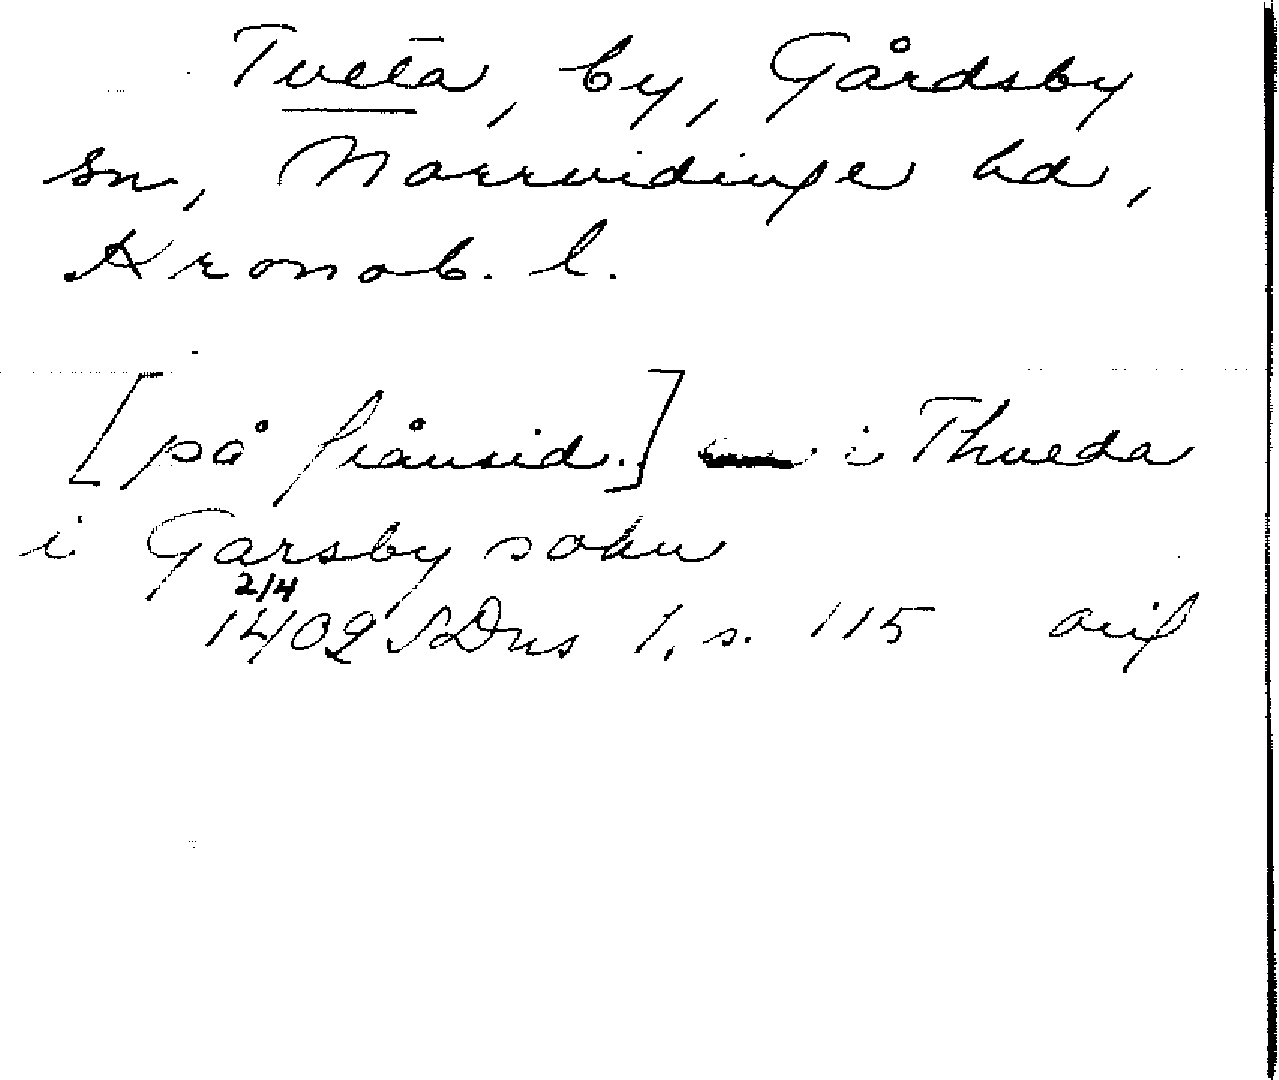 Tveta, by, Gårdsby
sn, Norrvidinge hd,
Kronob. l.
[på fränsid.] i Thveda
i Garsby sokn
2/4
1402 SDns 1, s. 115 orig